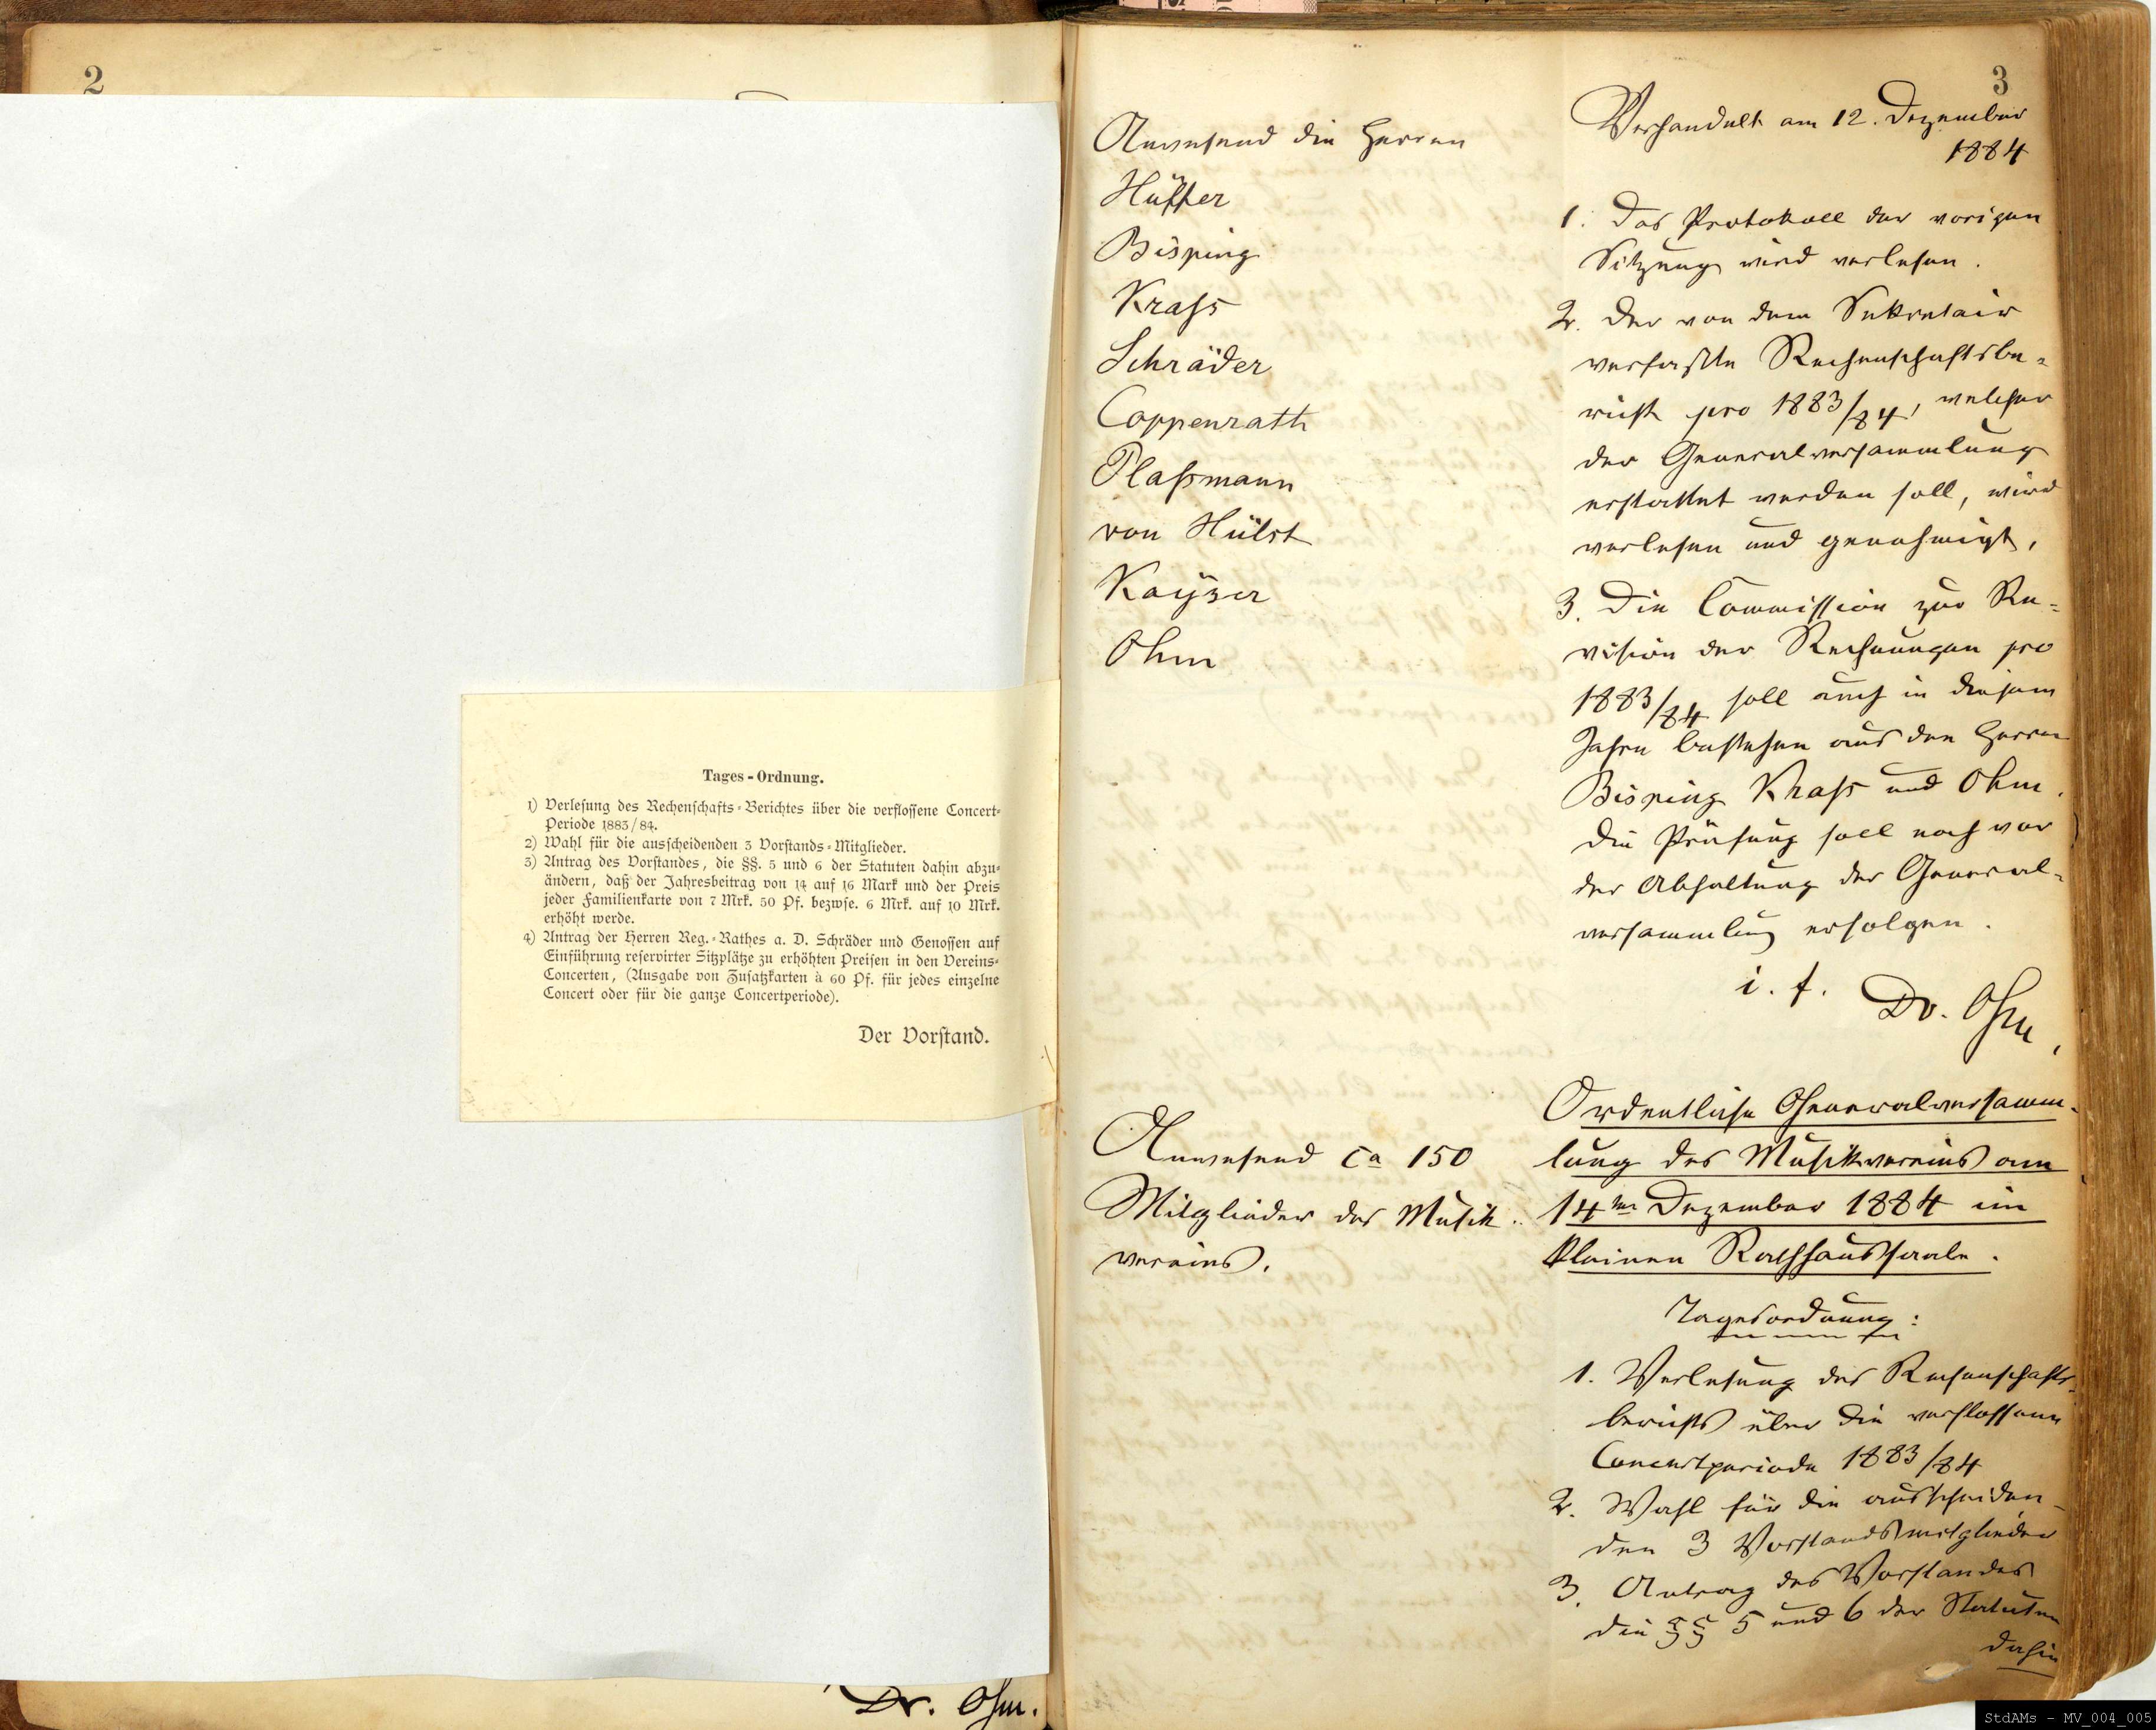 2
Tages-Ordnung.
1) Verlesung des Rechenschafts-Berichtes über die verflossene Concert-
Periode 1883/84.
2) Wahl für die ausscheidenden 3 Vorstands-Mitglieder.
3) Antrag des Vorstandes, die §§. 5 und 6 der Statuten dahin abzu-
ändern, daß der Jahresbeitrag von 14 auf 16 Mark und der Preis
jeder Familienkarte von 7 Mrk. 50 Pf. bezwse. 6 Mrk. auf 10 Mrk.
erhöht werde.
4) Antrag der Herren Reg.-Rathes a. D. Schräder und Genossen auf
Einführung reservirter Sitzplätze zu erhöhten Preisen in den Vereins-
Concerten, (Ausgabe von Zusatzkarten à 60 Pf. für jedes einzelne
Concert oder für die ganze Concertperiode).
Der Vorstand.
Dr. Ohm.
3
Anwesend die Herren
Hüffer
Bisping
Krass
Schräder
Coppenrath
Plaßmann
von Hülst
Kayser
Ohm
Verhandelt am 12. Dezember
1884
1. Das Protokoll der vorigen
Sitzung wird verlesen.
2. Der von dem Sekretair
verfaßte Rechenschaftsbe-
richt pro 1883/84, welcher
der Generalversammlung
erstattet werden soll, wird
verlesen und genehmigt.
3. Die Commission zur Re-
vision der Rechnungen pro
1883/84 soll auch in diesem
Jahre bestehen aus den Herren
Bisping Krass und Ohm.
Die Prüfung soll noch vor
der Abhaltung der General-
versammlung erfolgen.
i. f. Dr. Ohm,
Anwesend ca 150
Mitglieder des Musik-
vereins.
Ordentliche Generalversamm-
lung des Musikvereins am
14ten Dezember 1884 im
kleinen Rathhaussaale.
Tagesordnung:
1. Verlesung des Rechenschafts-
berichts über die verflossene
Concertperiode 1883/84
2. Wahl für die ausscheiden-
den 3 Vorstandsmitglieder
3. Antrag des Vorstandes
die §§ 5 und 6 der Statuten
dahin
StdAMs - MV_004_005